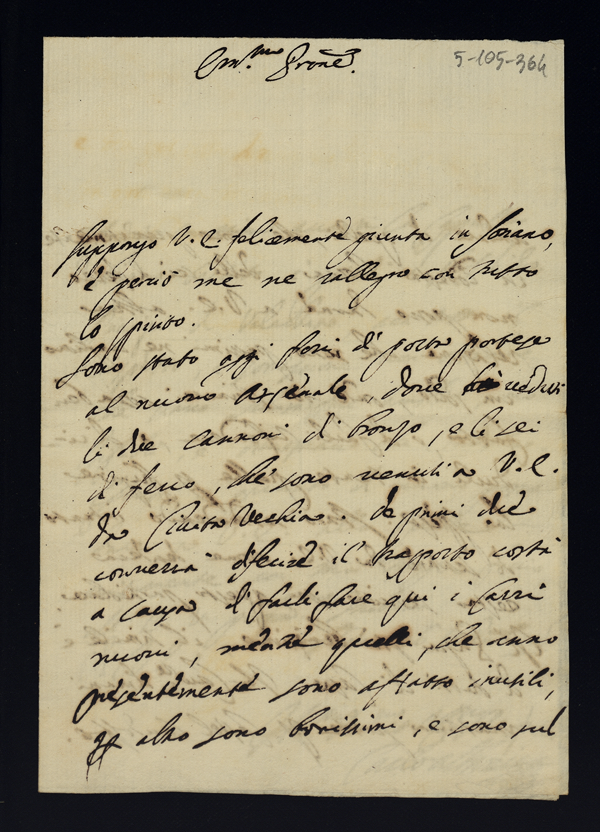 Em.mo Prone
5-105-364
Suppongo V. E. felicemente giunta in Soriano,
e perciò me ne rallegro con tutto
lo spirito.
Sono stato oggi fori di porta portese
al nuovo Arsenale, dove vedusi
li due cannoni di bronzo, e li sei
di ferro, che sono venuti a V. E.
da Civita Vechia. De primi due
converrà diferire il trasporto costà
a causa di farli fare qui i Carri
nuovi, mentre quelli, che anno
presentemente sono affatto inutili,
altro sono bonissimi, e sono sul